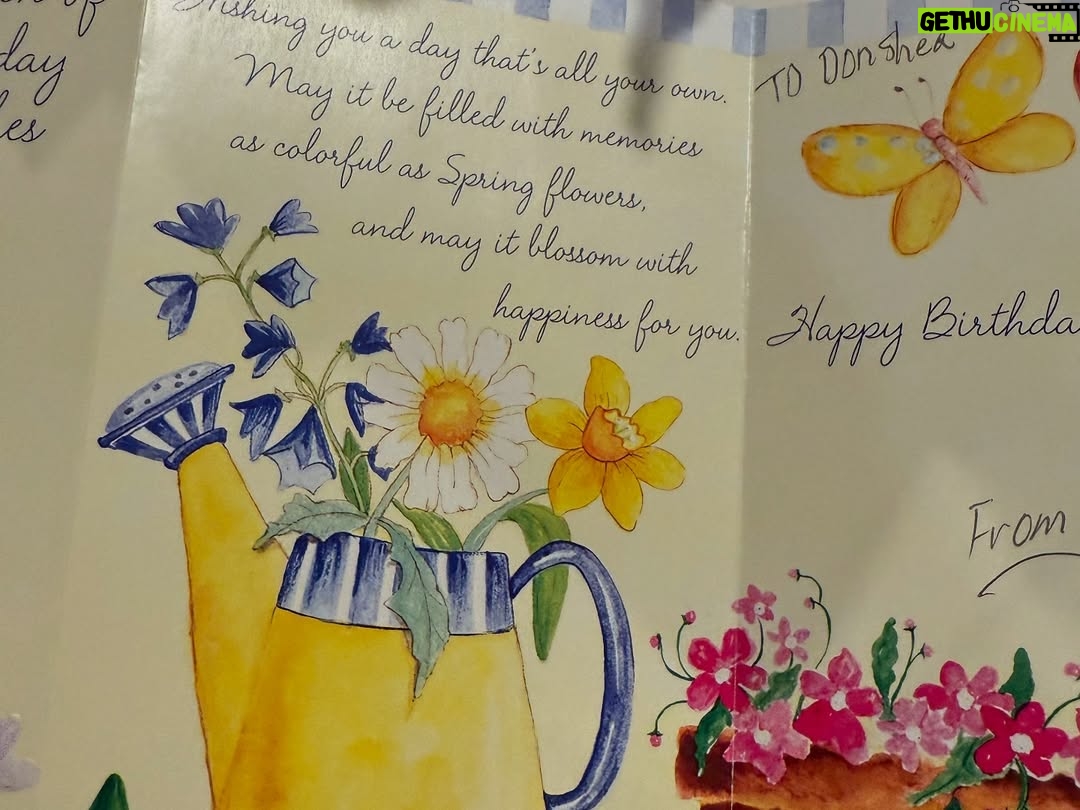 day
es
Wishing you a day that's all your own.
May it be filled with memories
as colorful as Spring flowers,
and may it blossom with
happiness for you.
GETHUCINEMA
TO Donshea
Happy Birthda
From